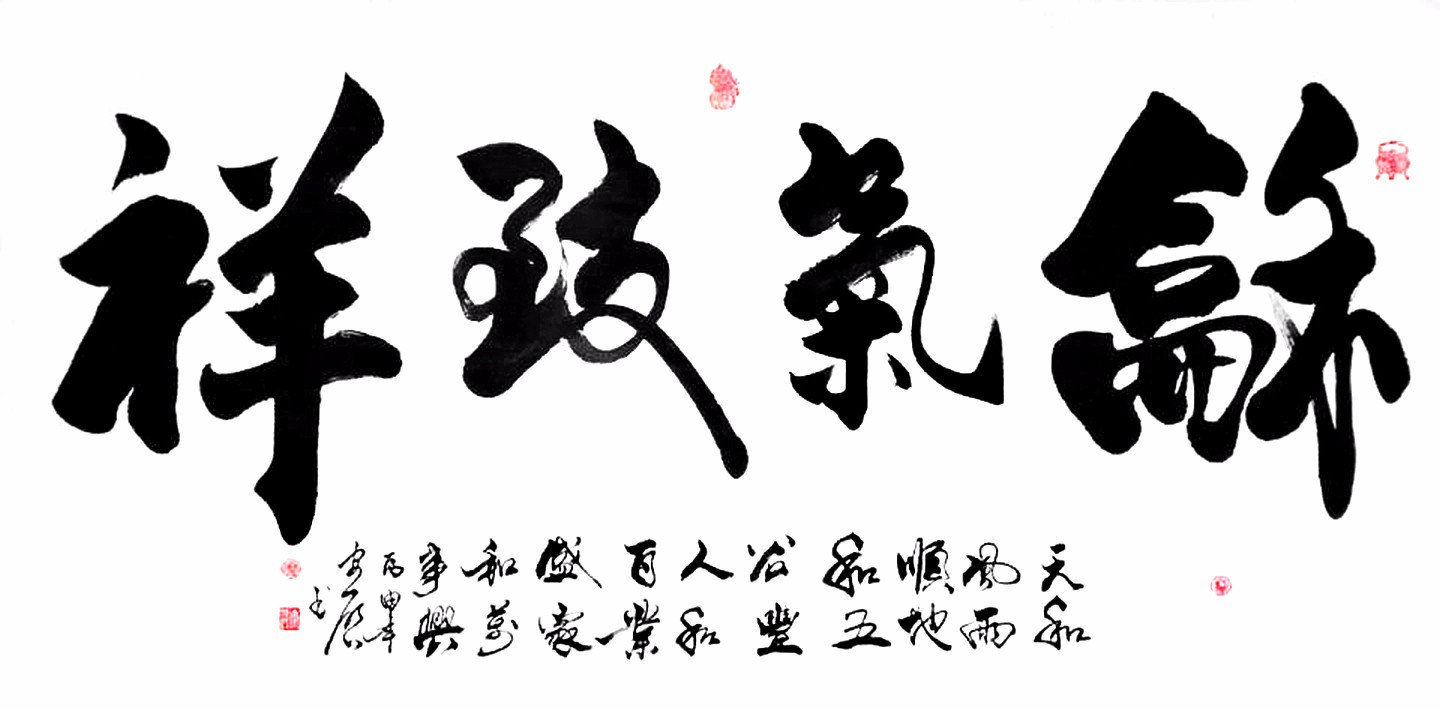 龢氣致祥
天和
風雨
順地
和五
谷豐
人和
百業
盛家
和萬
事興
丙申年
书